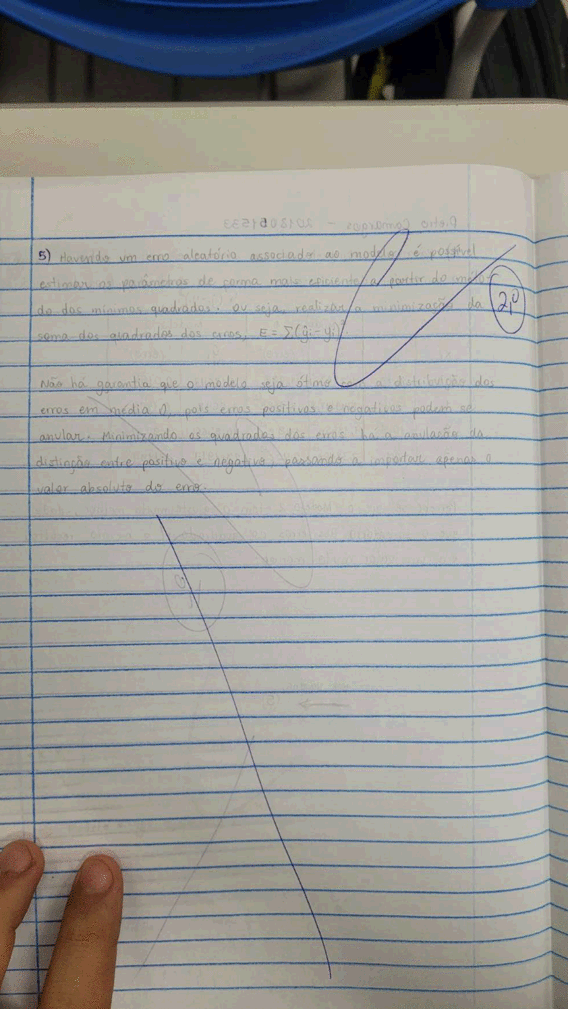 5) Havendo um erro aleatório associado ao modelo, é possível
estimar os parâmetros de forma mais eficiente a partir do méto-
do dos mínimos quadrados. Ou seja, realizar a minimização da
soma dos quadrados dos erros, E = Σ(ŷi - yi)²
2,0
Não há garantia que o modelo seja ótimo com a distribuição dos
erros em média 0, pois erros positivos e negativos podem se
anular. Minimizando os quadrados dos erros há a anulação da
distinção entre positivo e negativo, passando a importar apenas o
valor absoluto do erro.